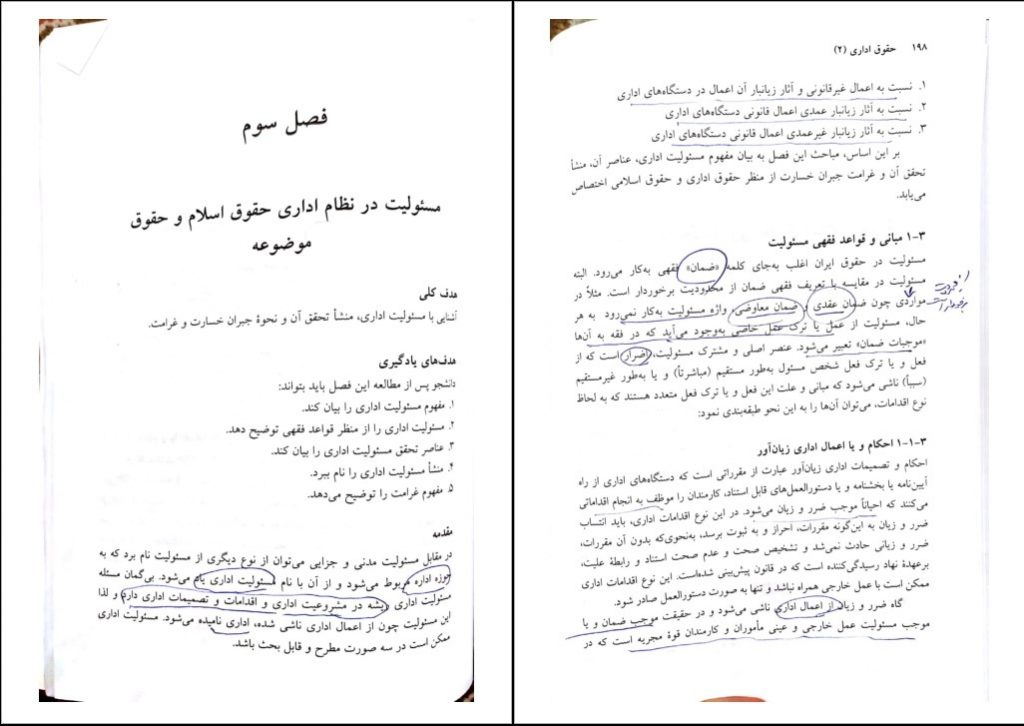 فصل سوم
مسئولیت در نظام اداری حقوق اسلام و حقوق
موضوعه
هدف کلی
آشنایی با مسئولیت اداری، منشأ تحقق آن و نحوۀ جبران خسارت و غرامت.
هدف‌های یادگیری
دانشجو پس از مطالعه این فصل باید بتواند:
۱. مفهوم مسئولیت اداری را بیان کند.
۲. مسئولیت اداری را از منظر قواعد فقهی توضیح دهد.
۳. عناصر تحقق مسئولیت اداری را بیان کند.
۴. منشأ مسئولیت اداری را نام ببرد.
۵. مفهوم غرامت را توضیح می‌دهد.
مقدمه
در مقابل مسئولیت مدنی و جزایی می‌توان از نوع دیگری از مسئولیت نام برد که به
حوزه اداره مربوط می‌شود و از آن با نام مسئولیت اداری یاد می‌شود. بی‌گمان مسئله
مسئولیت اداری ریشه در مشروعیت اداری و اقدامات و تصمیمات اداری دارد و لذا
این مسئولیت چون از اعمال اداری ناشی شده، اداری نامیده می‌شود. مسئولیت اداری
ممکن است در سه صورت مطرح و قابل بحث باشد.
۱۹۸ حقوق اداری (۲)
۱. نسبت به اعمال غیرقانونی و آثار زیانبار آن اعمال در دستگاه‌های اداری
۲. نسبت به آثار زیانبار عمدی اعمال قانونی دستگاه‌های اداری
۳. نسبت به آثار زیانبار غیرعمدی اعمال قانونی دستگاه‌های اداری
بر این اساس، مباحث این فصل به بیان مفهوم مسئولیت اداری، عناصر آن، منشأ
تحقق آن و غرامت جبران خسارت از منظر حقوق اداری و حقوق اسلامی اختصاص
می‌یابد.
۳-۱ مبانی و قواعد فقهی مسئولیت
مسئولیت در حقوق ایران اغلب به‌جای کلمه «ضمان» فقهی به‌کار می‌رود. البته
مسئولیت در مقایسه با تعریف فقهی ضمان از محدودیت برخوردار است. مثلاً در
مواردی چون ضمان عقدی و ضمان معاوضی، واژه مسئولیت به‌کار نمی‌رود به هر
حال، مسئولیت از عمل یا ترک عقل خاصی به‌وجود می‌آید که در فقه به آن‌ها
«موجبات ضمان» تعبیر می‌شود. عنصر اصلی و مشترک مسئولیت، اضرار است که از
فعل و یا ترک فعل شخص مسئول به‌طور مستقیم (مباشرتاً) و یا به‌طور غیرمستقیم
(سبباً) ناشی می‌شود که مبانی و علت این فعل و یا ترک فعل متعدد هستند که به لحاظ
نوع اقدامات، می‌توان آن‌ها را به این نحو طبقه‌بندی نمود:
۳-۱-۱ احکام و یا اعمال اداری زیان‌آور
احکام و تصمیمات اداری زیان‌آور عبارت از مقرراتی است که دستگاه‌های اداری از راه
آیین‌نامه یا بخشنامه و یا دستورالعمل‌های قابل استناد، کارمندان را موظف به انجام اقداماتی
می‌کنند که احیاناً موجب ضرر و زیان می‌شود. در این نوع اقدامات اداری، باید انتساب
ضرر و زیان به این‌گونه مقررات، احراز و به ثبوت برسد، به‌نحوی‌که بدون آن مقررات،
ضرر و زیانی حادث نمی‌شد و تشخیص صحت و عدم صحت استناد و رابطهٔ علیت،
برعهدهٔ نهاد رسیدگی‌کننده است که در قانون پیش‌بینی شده‌است. این نوع اقدامات اداری
ممکن است با عمل خارجی همراه نباشد و تنها به صورت دستورالعمل صادر شود.
گاه ضرر و زیان از اعمال اداری ناشی می‌شود و در حقیقت موجب ضمان و یا
موجب مسئولیت عمل خارجی و عینی مأموران و کارمندان قوۀ مجریه است که در